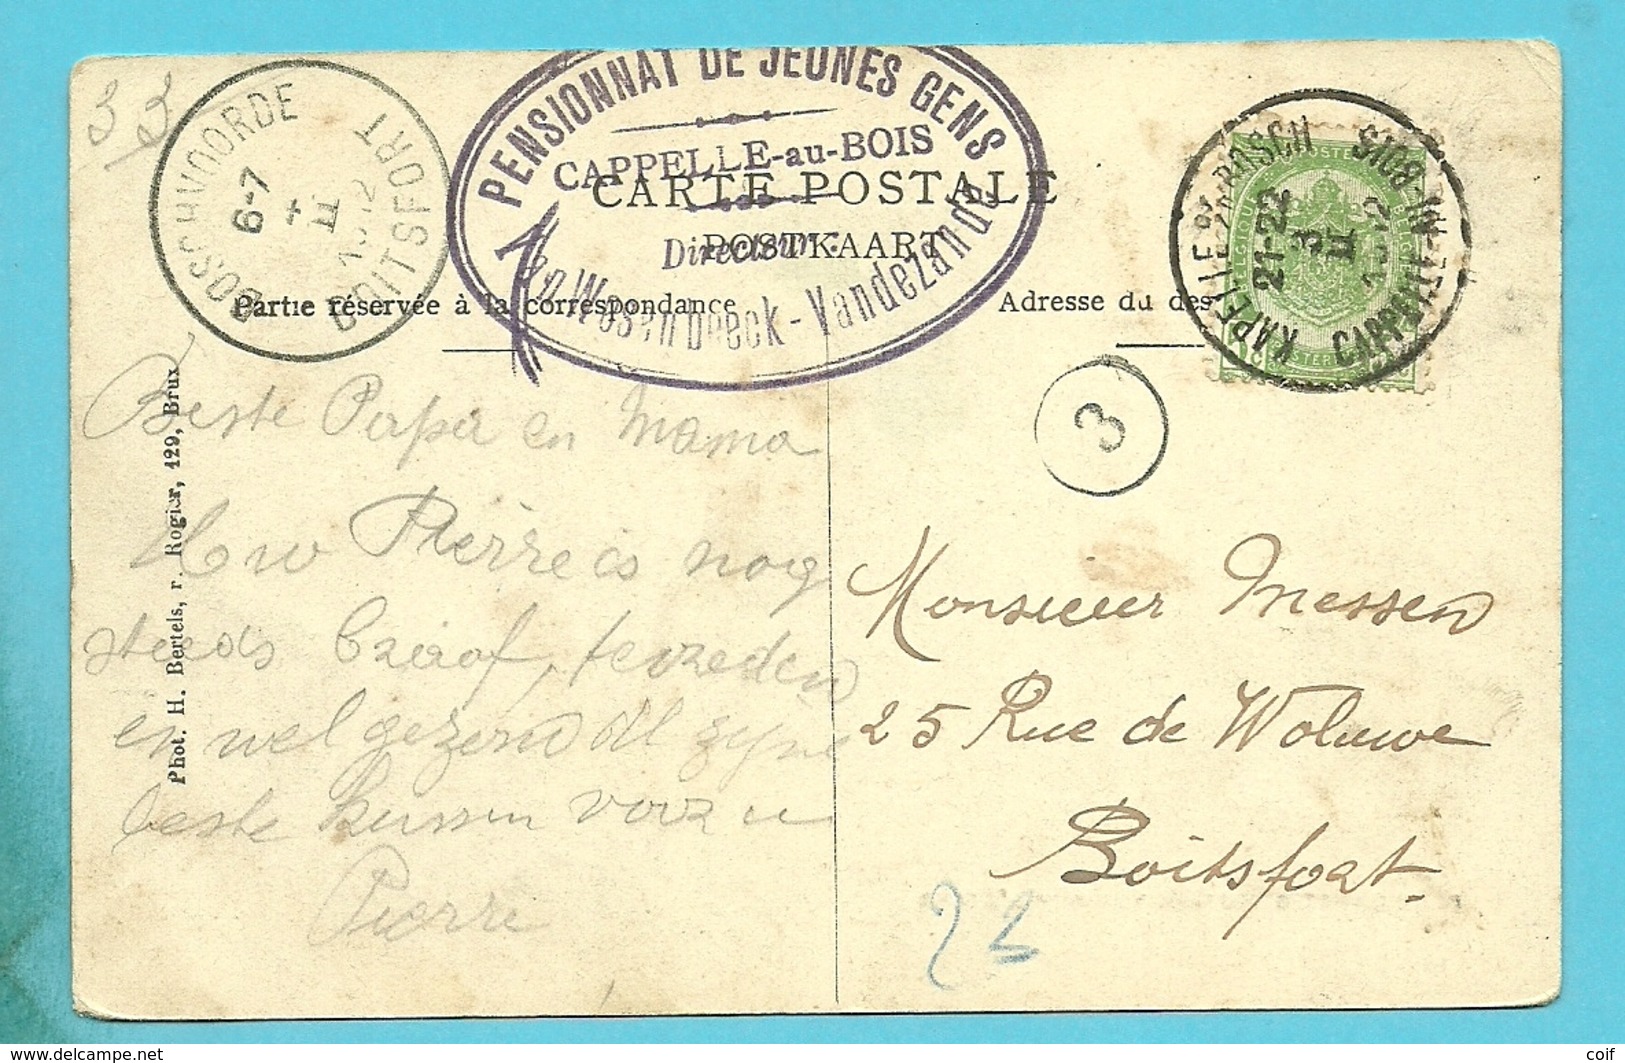 PENSIONNAT DE JEUNES GENS
CAPPELLE-au-BOIS
Directeur:
Wesenbeeck - Vandezande
BOSCHVOORDE
6-7
4
II
1912
BOITSFORT
CARTE POSTALE
POSTKAART
Partie réservée à la correspondance
Adresse du des
KAPELLE BOSCH
21-22
3
II
1912
CAPPELLE-AU-BOIS
3
Phot. H. Bertels, r. Rogier, 129, Brux
Beste Papa en Mama
Uw Pierre is nog
steeds braaf, tevreden
en wel gezond Al zyne
beste kussen voor u
Pierre
Monsieur Messen
25 Rue de Woluwe
Boitsfort.
delcampe.net
coif